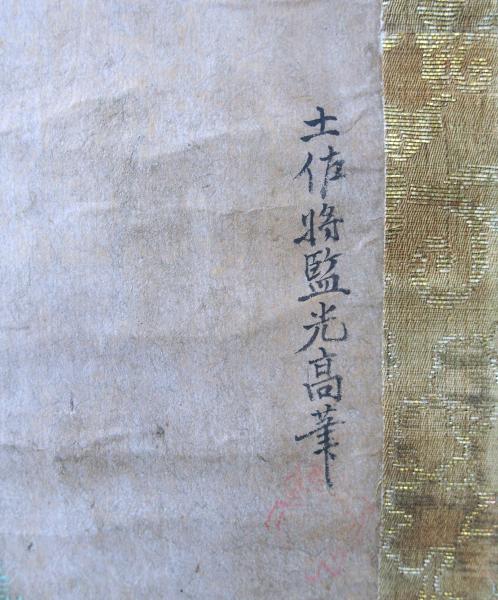 土佐将監光高筆